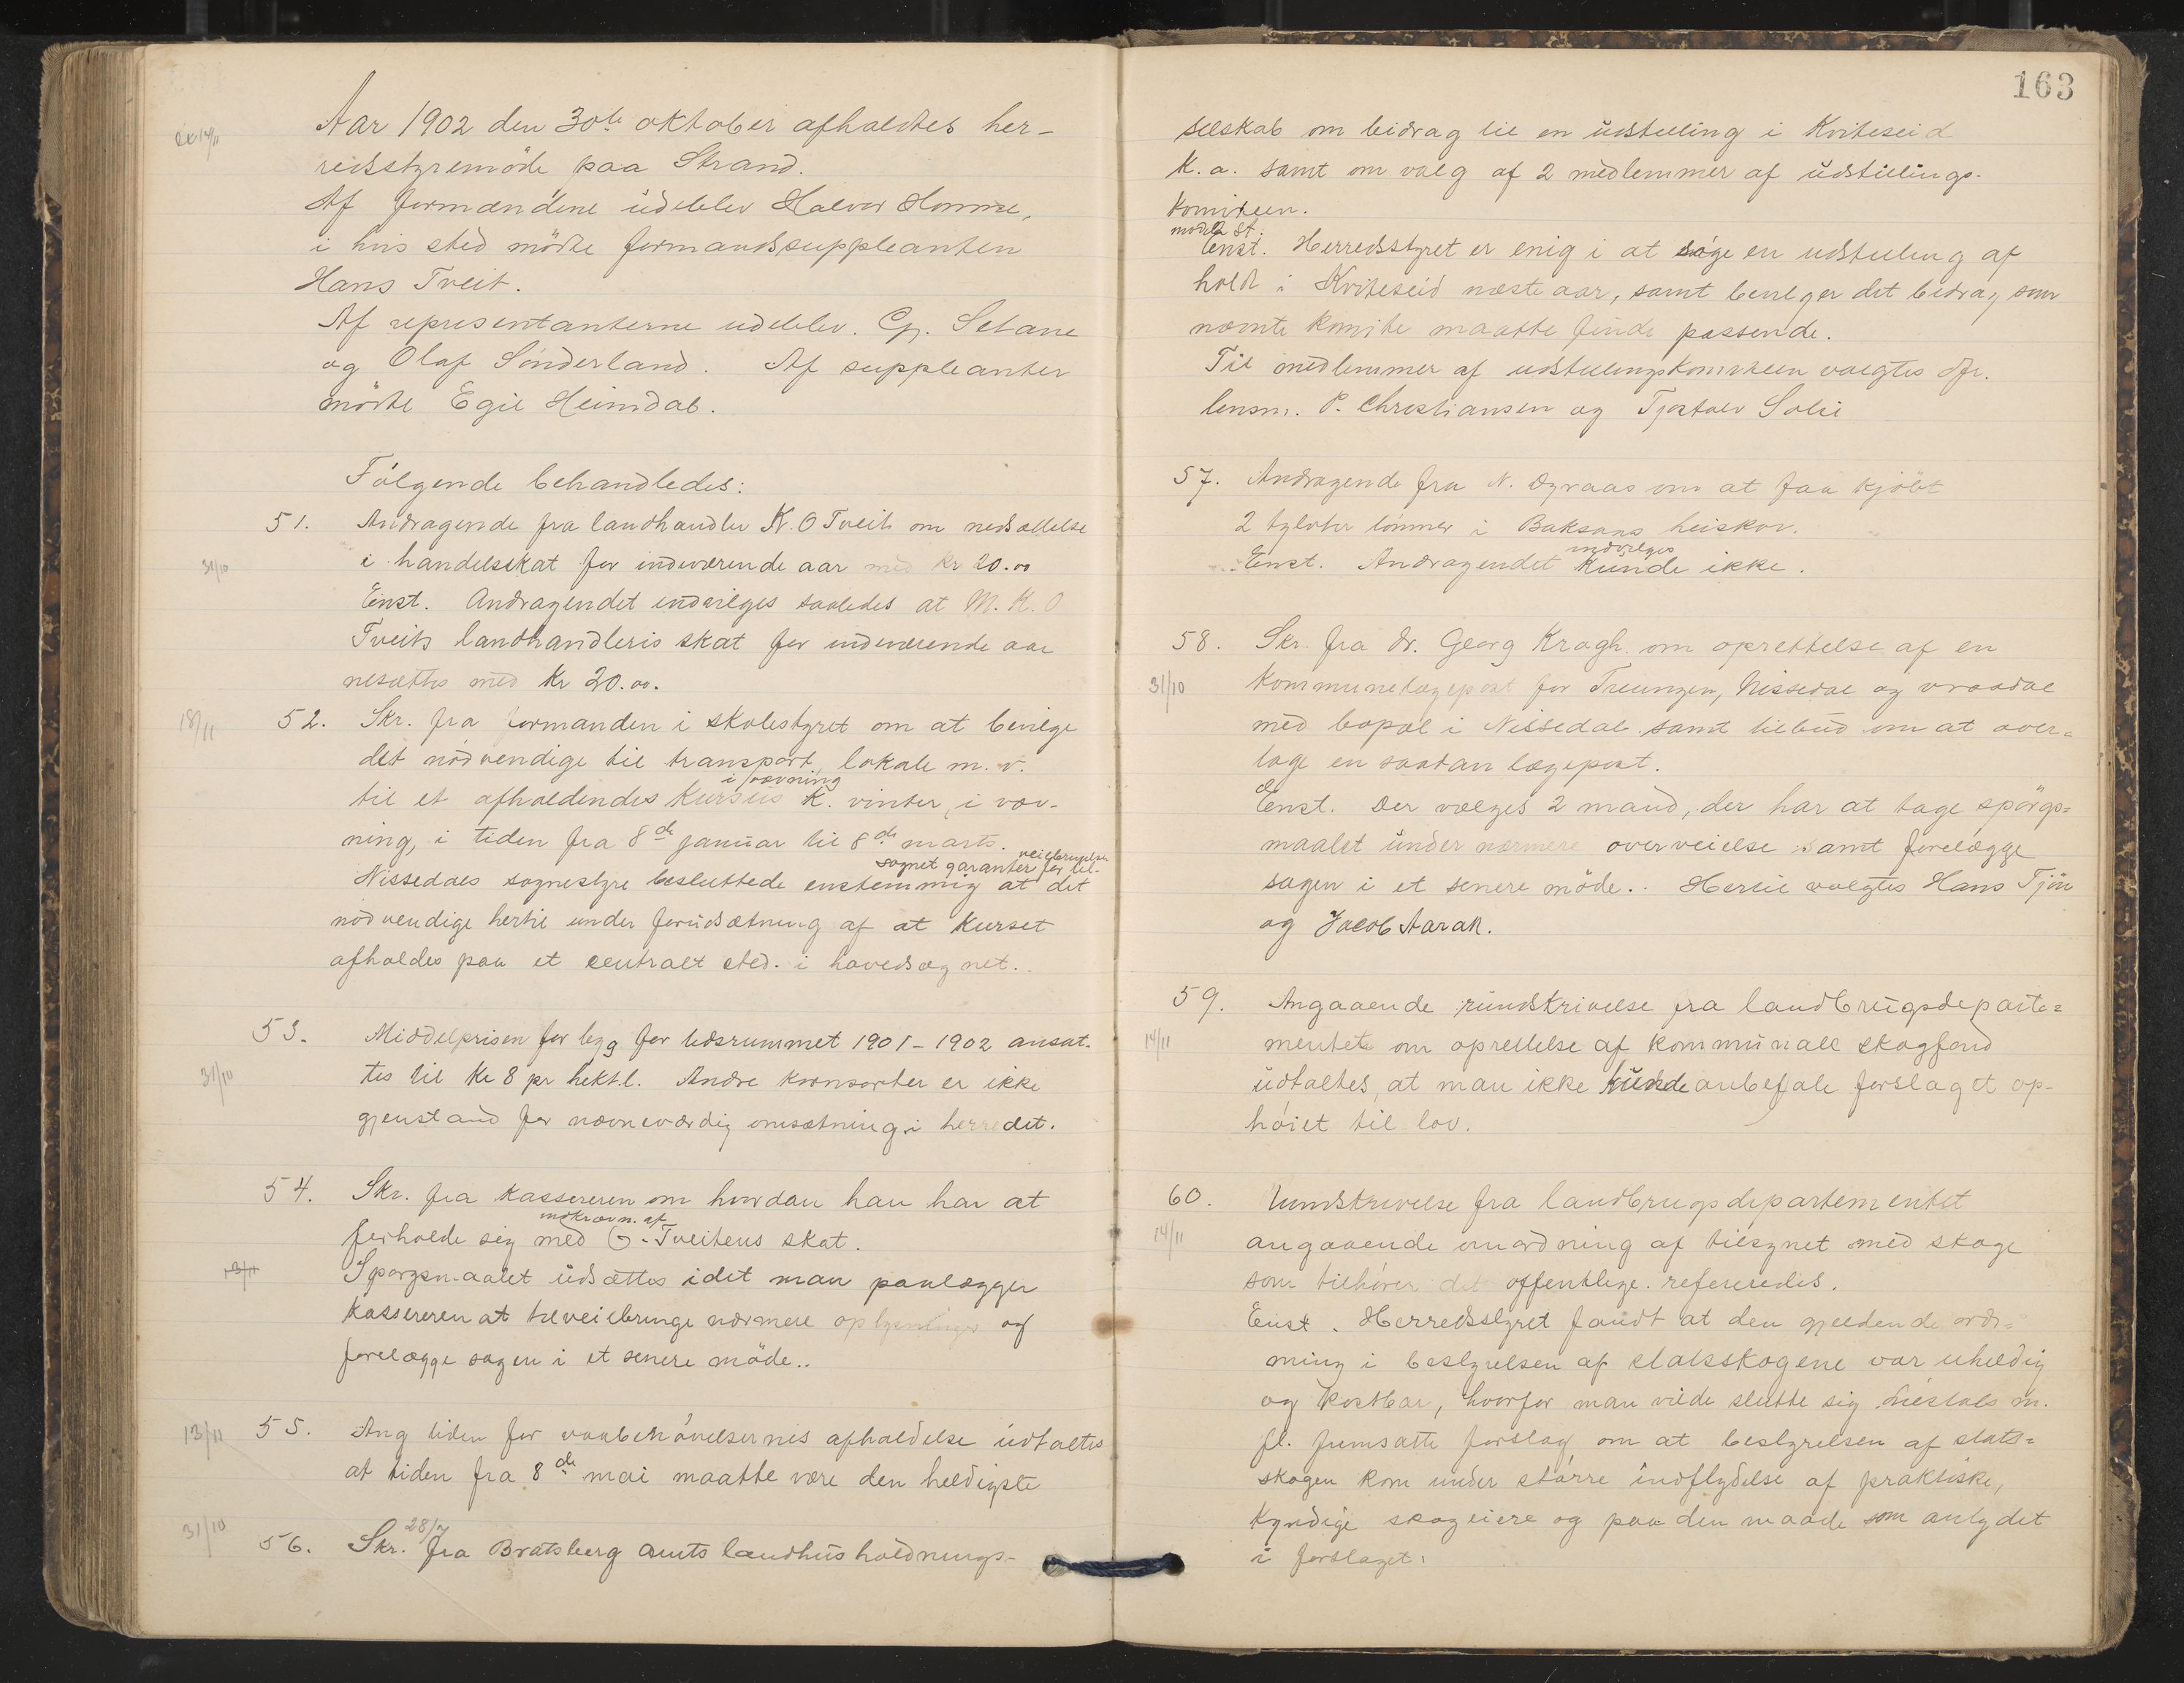 Aar 1902 den 30te oktober afholdtes her-
redsstyremöde paa Strand.
Af formændene udeblev Halvor Homme,
i hvis sted mödte formandssuppleanten
Hans Tveit.
Af representanterne udeblev Gj. Setane
og Olaf Sönderland. Af suppleanter
mödte Egil Heimdal.
Fölgende behandledes:
51. Andragende fra landhandler K. O Tveit om nedsættelse
31/10
i handelsskat for indeværende aar med kr 20.00
Enst. Andragendet indvilges saaledes at M. K. O
Tveits landhandleris skat for indeværende aar
nesættes med kr 20.00.
18/11
52. Skr. fra formanden i skolestyret om at bevilge
det nödvendige til transport, lokale m. v.
i vævning
til et afholdendes kursus K. vinter, i væv-
ning, i tiden fra 8de januar til 8de marts.
sognet garanter for tilveiebringelse
Nissedals sognestyre besluttede enstemmig at det
nödvendige hertil under forudsætning af at kurset
afholdes paa et centralt sted i hovedsognet.
53. Middelprisen for byg for tidsrummet 1901-1902 ansat-
31/10
tes til kr 8 pr hektl. Andre kornsorter er ikke
gjenstand for nævneværdig omsætning i herredet.
54. Skr. fra kassereren om hvordan han har at
indkrævn. af
forholde sig med G. Tveitens skat.
13/11
Spørgsmaalet udsættes idet man paalægger
kassereren at tilveiebringe nærmere oplysninger og
forelægge sagen i et senere möde..
13/11
55. Ang tiden for vaabenövelsernes afholdelse udtaltes
at tiden fra 8de mai maatte være den heldigste
31/10
28/7
56. Skr. fra Bratsberg amts landhusholdnings-
163
selskab om bidrag til en udstilling i Kviteseid
k. a. samt om valg af 2 medlemmer af udstillings-
komiteen.
Enst. Herredsstyret er enig i at söge en udstilling af
holdt i Kviteseid næste aar, samt bevilger det bidrag som
nævnte komite maatte finde passende.
Til medlemmer af udstillingskomiteen valgtes Hr.
lensm. P. Christiansen og Tjostolv Solli
57. Andragende fra N. Dyraas om at faa kjöbt
2 tylvter tömmer i Baksaas heiskov.
indvilges
Enst. Andragendet kunde ikke.
58. Skr. fra Dr. Georg Kragh om oprettelse af en
31/10
kommunelægepost for Treungen, Nissedal og vraadal
med bopæl i Nissedal samt tilbud om at over-
tage en saadan lægepost.
Enst. Der vælges 2 mand, der har at tage spörgs-
maalet under nærmere overveielse samt forelægge
sagen i et senere möde.. Hertil valgtes Hans Tjön
og Jacob Aarak.
59. Angaaende rundskrivelse fra landbrugsdeparte-
14/11
mentet om oprettelse af kommunale skogfond
udtaltes, at man ikke kunde anbefale forslaget op-
höiet til lov.
60. Rundskrivelse fra landbrugsdepartementet
14/11
angaaende omordning af tilsynet med skoge
som tilhörer det offentlige refereredes.
Enst. Herredsstyret fandt at den gjeldende ord-
ning i bestyrelsen af statsskogene var uheldig
og kostbar, hvorfor man vilde slutte sig Liestøls m.
fl. fremsatte forslag om at bestyrelsen af stats-
skogen kom under större indflydelse af praktiske,
kyndige skogeiere og paa den maade som antydet
i forslaget.